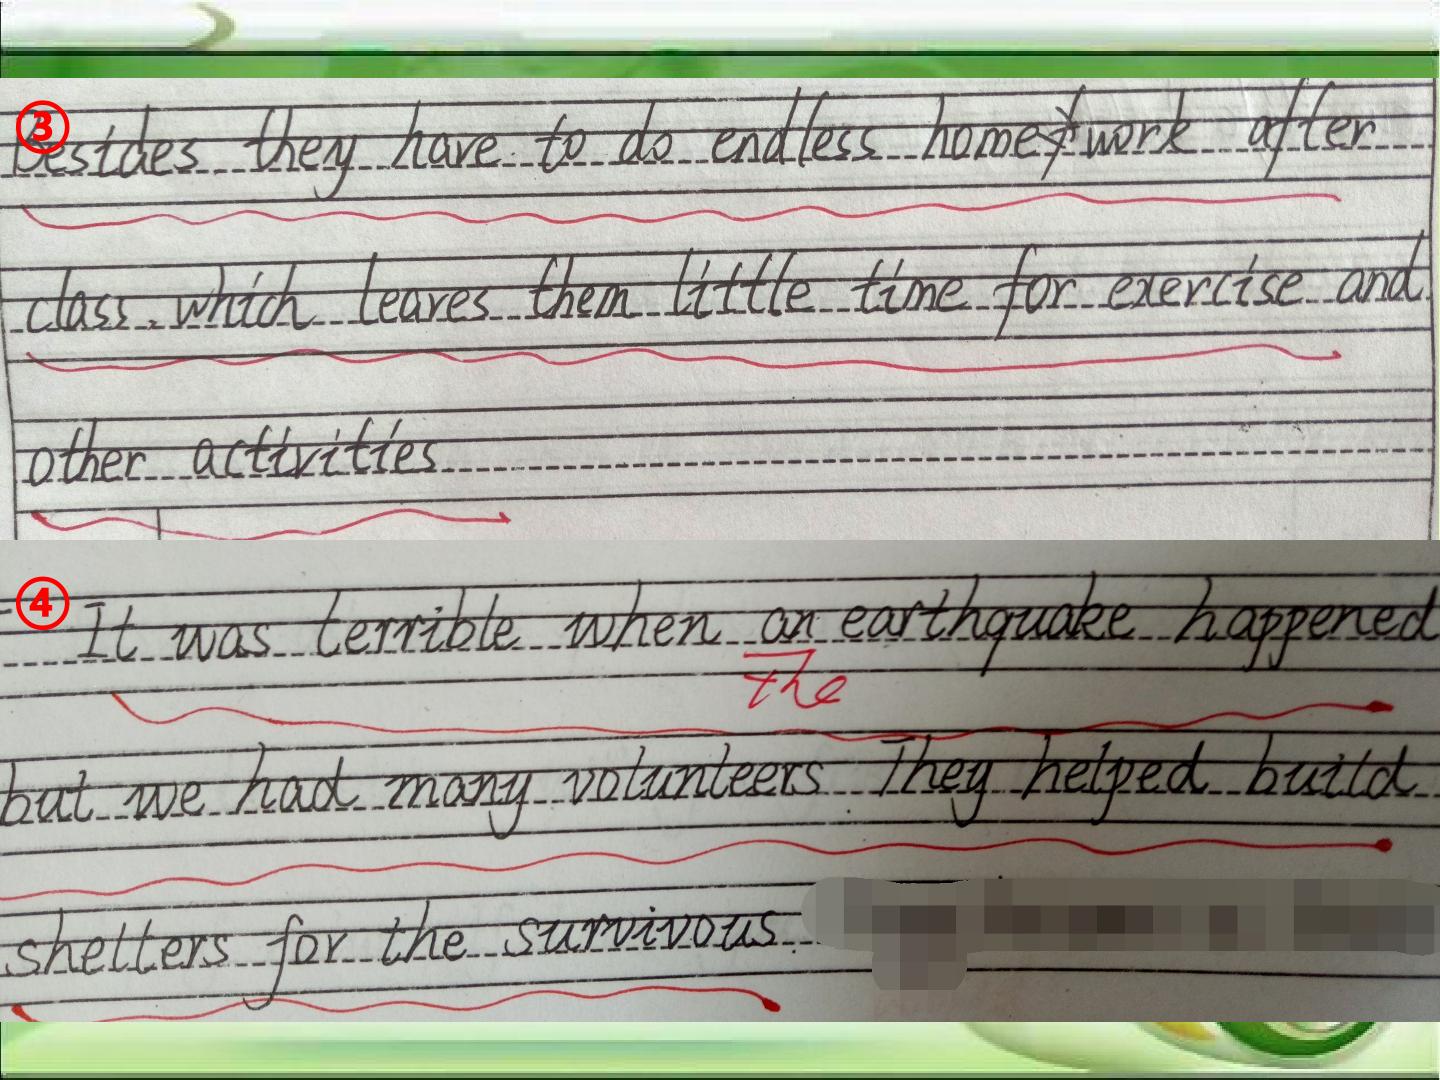 ③
Besides they have to do endless homework after
class, which leaves them little time for exercise and
other activities
④
It was terrible when an earthquake happened
the
but we had many volunteers. They helped build
shelters for the survivous.